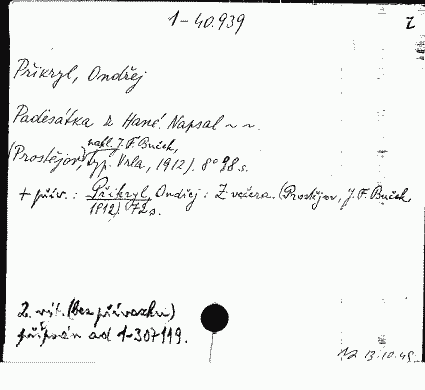 1-40.939
Z
Přikryl, Ondřej
Padesátka z Hané. Napsal ~ ~.
nakl. J. F. Buček,
(Prostějov, typ. Vrla, 1912). 8° 98 s.
+ přív.: Přikryl, Ondřej: Z večera. (Prostějov, J. F. Buček,
1912). 72 s.
2. výt. (bez přívazku)
připsán ad 1-307119.
13.10.49.